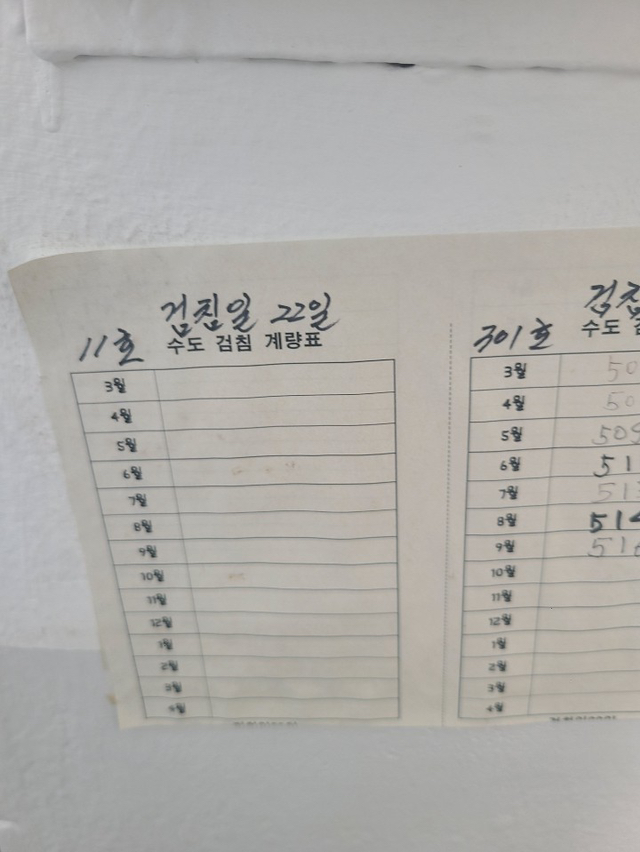 검침일 22일
11호 수도 검침 계량표
3월
4월
5월
6월
7월
8월
9월
10월
11월
12월
1월
2월
3월
4월
301호 수도
3월 50
4월 50
5월 509
6월 51
7월 51
8월 514
9월 516
10월
11월
12월
1월
2월
3월
4월